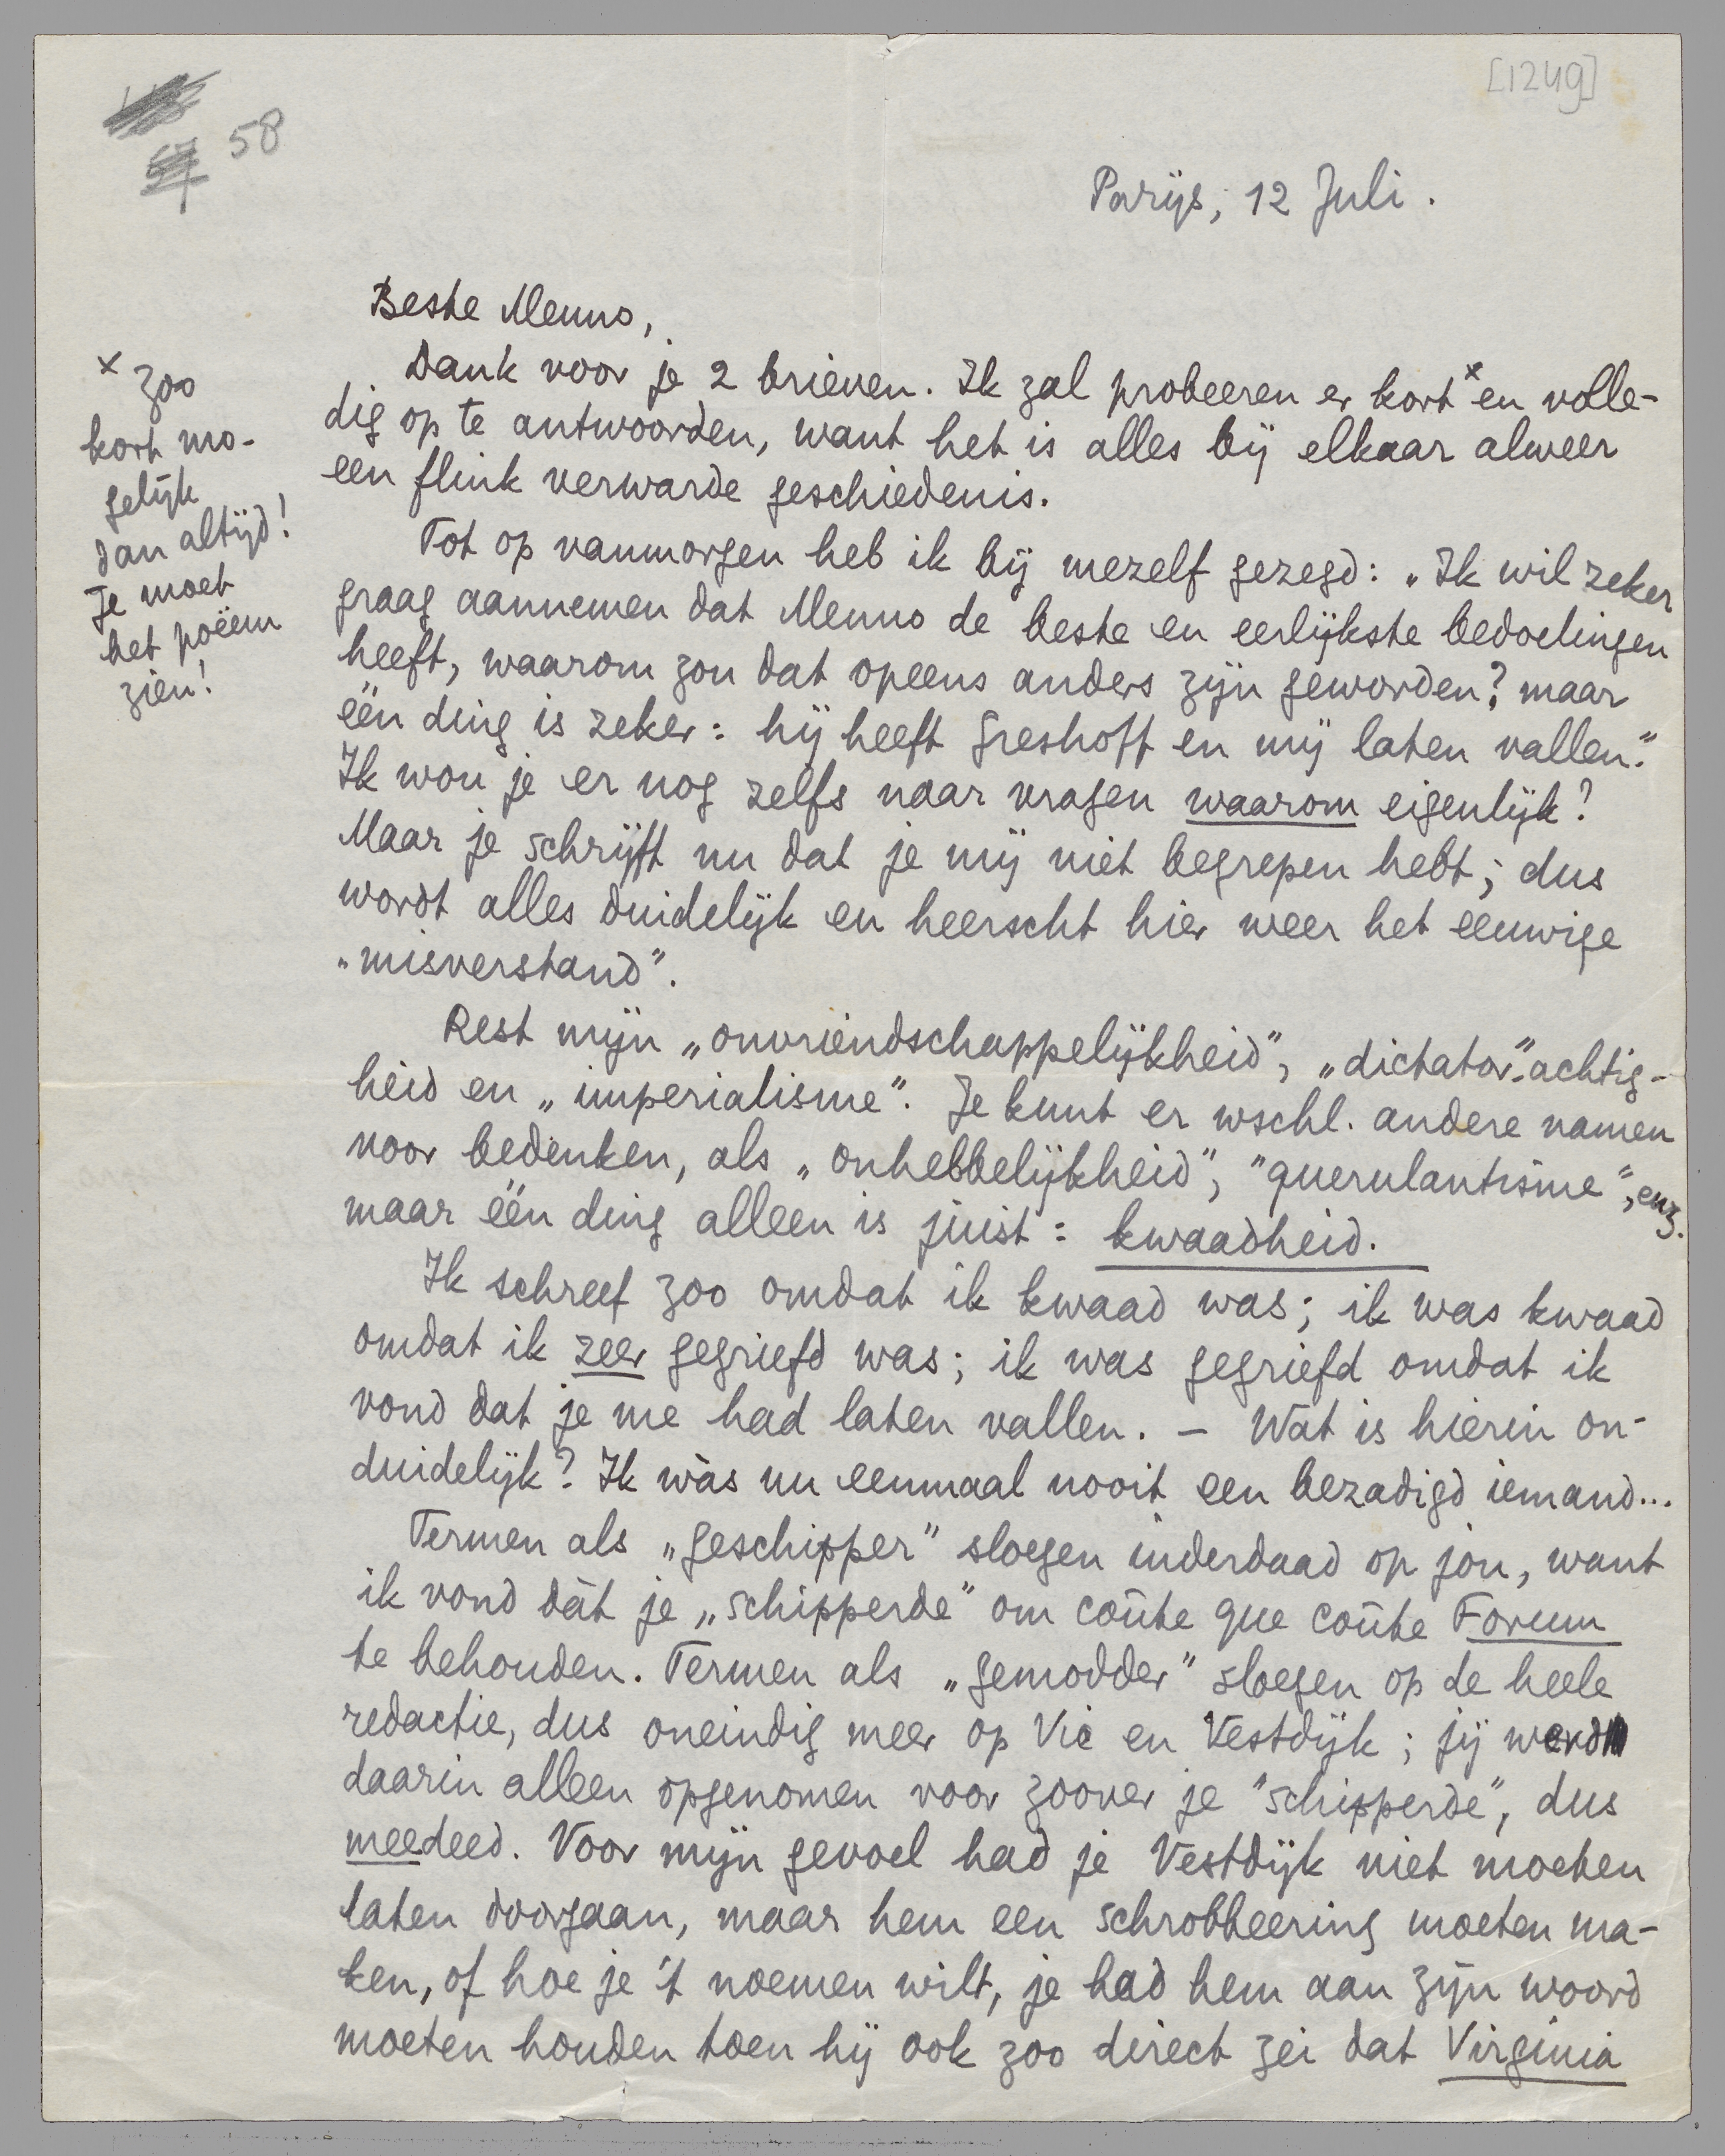 [1249]
58
Parijs, 12 Juli.
Beste Menno,
Dank voor je 2 brieven. Ik zal probeeren er kort x en volle-
dig op te antwoorden, want het is alles bij elkaar alweer
een flink verwarde geschiedenis.
x zoo
kort mo-
gelijk
dan altijd!
Je moet
het poëem
zien!
Tot op vanmorgen heb ik bij mezelf gezegd: „Ik wil zeker
graag aannemen dat Menno de beste en eerlijkste bedoelingen
heeft, waarom zou dat opeens anders zijn geworden? maar
één ding is zeker: hij heeft Greshoff en mij laten vallen."
Ik wou je er nog zelfs naar vragen waarom eigenlijk?
Maar je schrijft nu dat je mij niet begrepen hebt; dus
wordt alles duidelijk en heerscht hier weer het eeuwige
„misverstand".
Rest mijn „onvriendschappelijkheid", „dictator"-achtig-
heid en „imperialisme". Je kunt er wschl. andere namen
voor bedenken, als „onhebbelijkheid", "querulantisme", enz.
maar één ding alleen is juist: kwaadheid.
Ik schreef zoo omdat ik kwaad was; ik was kwaad
omdat ik zeer gegriefd was; ik was gegriefd omdat ik
vond dat je me had laten vallen. — Wat is hierin on-
duidelijk? Ik wàs nu eenmaal nooit een bezadigd iemand...
Termen als „geschipper" sloegen inderdaad op jou, want
ik vond dàt je „schipperde" om coûte que coûte Forum
te behouden. Termen als „gemodder" sloegen op de heele
redactie, dus oneindig meer op Vic en Vestdijk; jij werd
daarin alleen opgenomen voor zoover je "schipperde", dus
meedeed. Voor mijn gevoel had je Vestdijk niet moeten
laten doorgaan, maar hem een schrobbeering moeten ma-
ken, of hoe je 't noemen wilt, je had hem aan zijn woord
moeten houden toen hij ook zoo direct zei dat Virginia